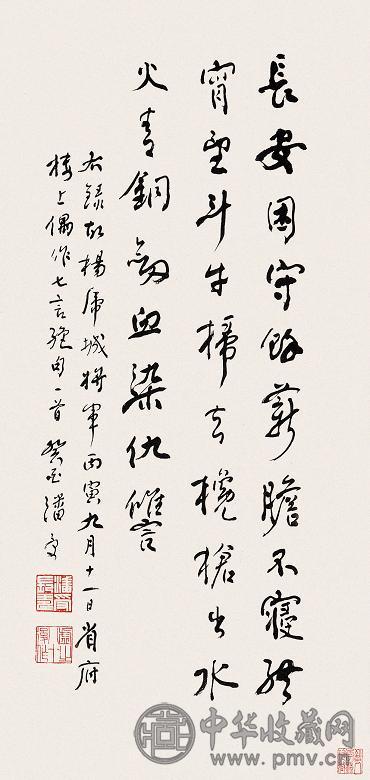 長安困守餘薪膽不寢終
宵望斗牛掃去欃槍出水
火青銅劍血染仇讎
右錄故楊虎城將軍丙寅九月十一日省府
樓上偶作七言絕句一首 癸酉潘受
中华收藏网
www.pmv.cn